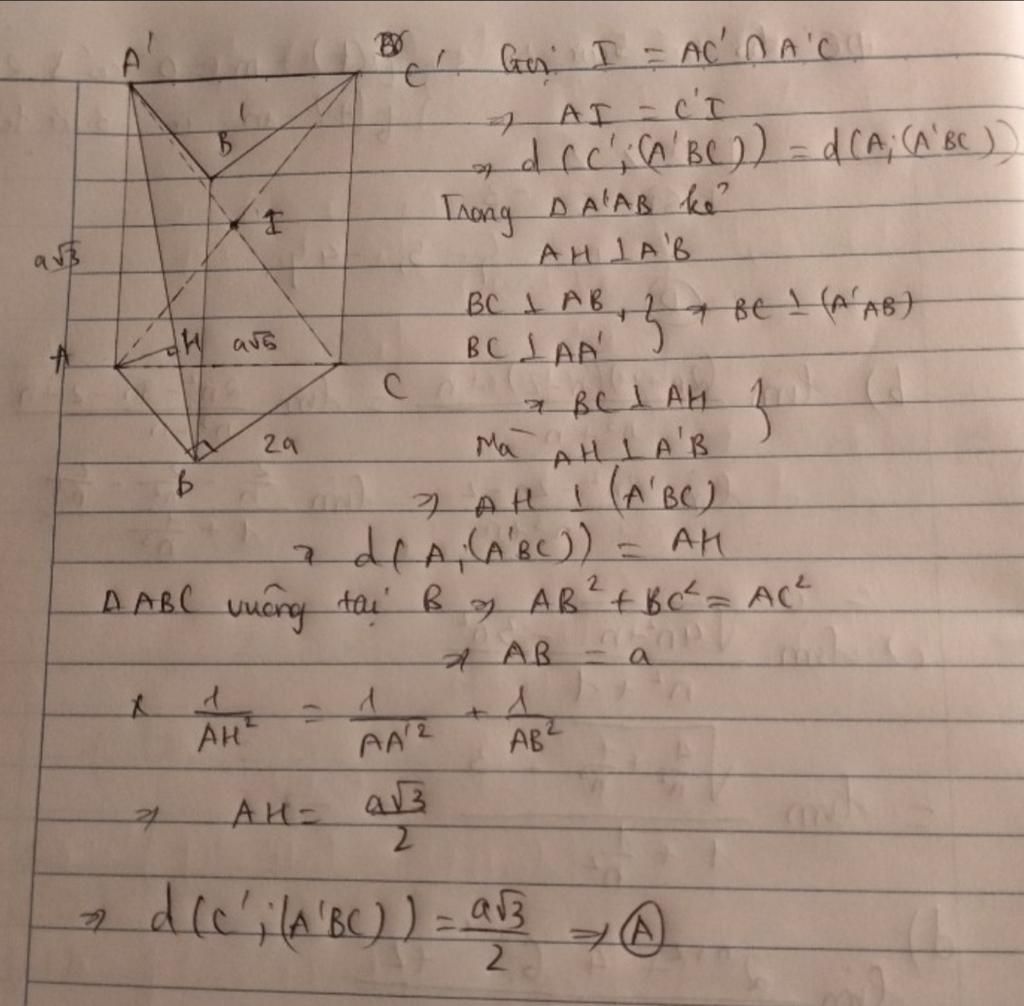 A'
C'
B'
I
a√3
A
H
a√5
C
2a
B
Gọi I = AC' ∩ A'C
⇒ AI = C'I
⇒ d(C';(A'BC)) = d(A;(A'BC))
Trong Δ A'AB kẻ
AH ⊥ A'B
BC ⊥ AB, } ⇒ BC ⊥ (A'AB)
BC ⊥ AA'
⇒ BC ⊥ AH }
Mà AH ⊥ A'B
⇒ AH ⊥ (A'BC)
⇒ d(A;(A'BC)) = AH
Δ ABC vuông tại B ⇒ AB² + BC² = AC²
⇒ AB = a
* 1/AH² = 1/AA'² + 1/AB²
⇒ AH = a√3/2
⇒ d(C';(A'BC)) = a√3/2 ⇒ Ⓐ